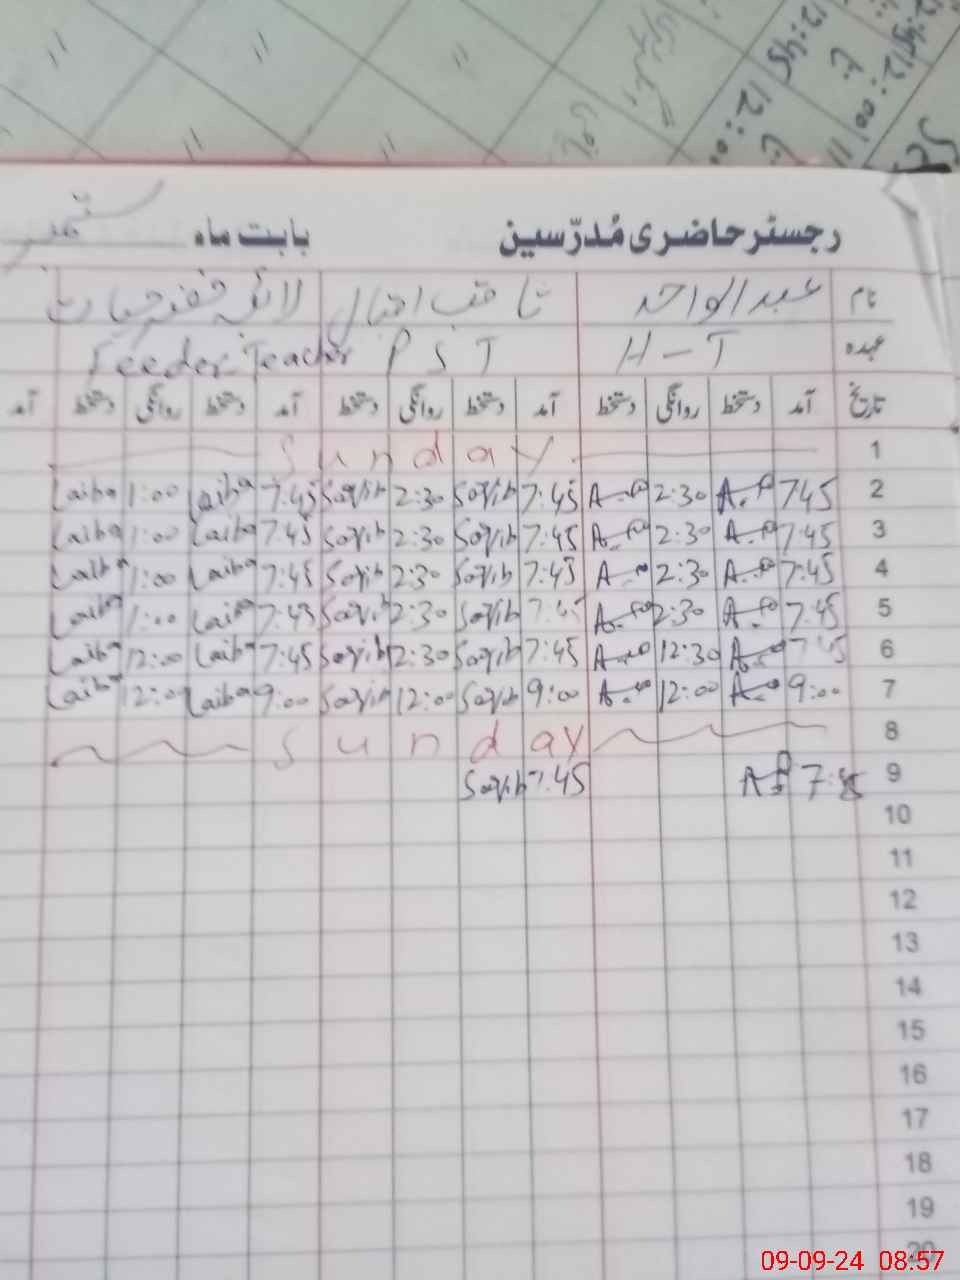 رجسٹر حاضری مُدرّسین بابت ماہ ستمبر
نام عبدالواحد ثاقب اقبال لائبہ خضر حیات
عہدہ H-T PST Feeder Teacher
تاریخ آمد دستخط روانگی دستخط آمد دستخط روانگی دستخط آمد دستخط روانگی دستخط آمد
1 Sunday
2 745 2:30 7:45 Saqib 2:30 Saqib 7:45 Laiba 1:00 Laiba
3 7:45 2:30 7:45 Saqib 2:30 Saqib 7:45 Laiba 1:00 Laiba
4 7:45 2:30 7:45 Saqib 2:30 Saqib 7:45 Laiba 1:00 Laiba
5 7:45 2:30 7:45 Saqib 2:30 Saqib 7:45 Laiba 1:00 Laiba
6 7:45 12:30 7:45 Saqib 2:30 Saqib 7:45 Laiba 12:00 Laiba
7 9:00 12:00 9:00 Saqib 12:00 Saqib 9:00 Laiba 12:00 Laiba
8 Sunday
9 7:45 7:45 Saqib
10
11
12
13
14
15
16
17
18
19
20
09-09-24 08:57